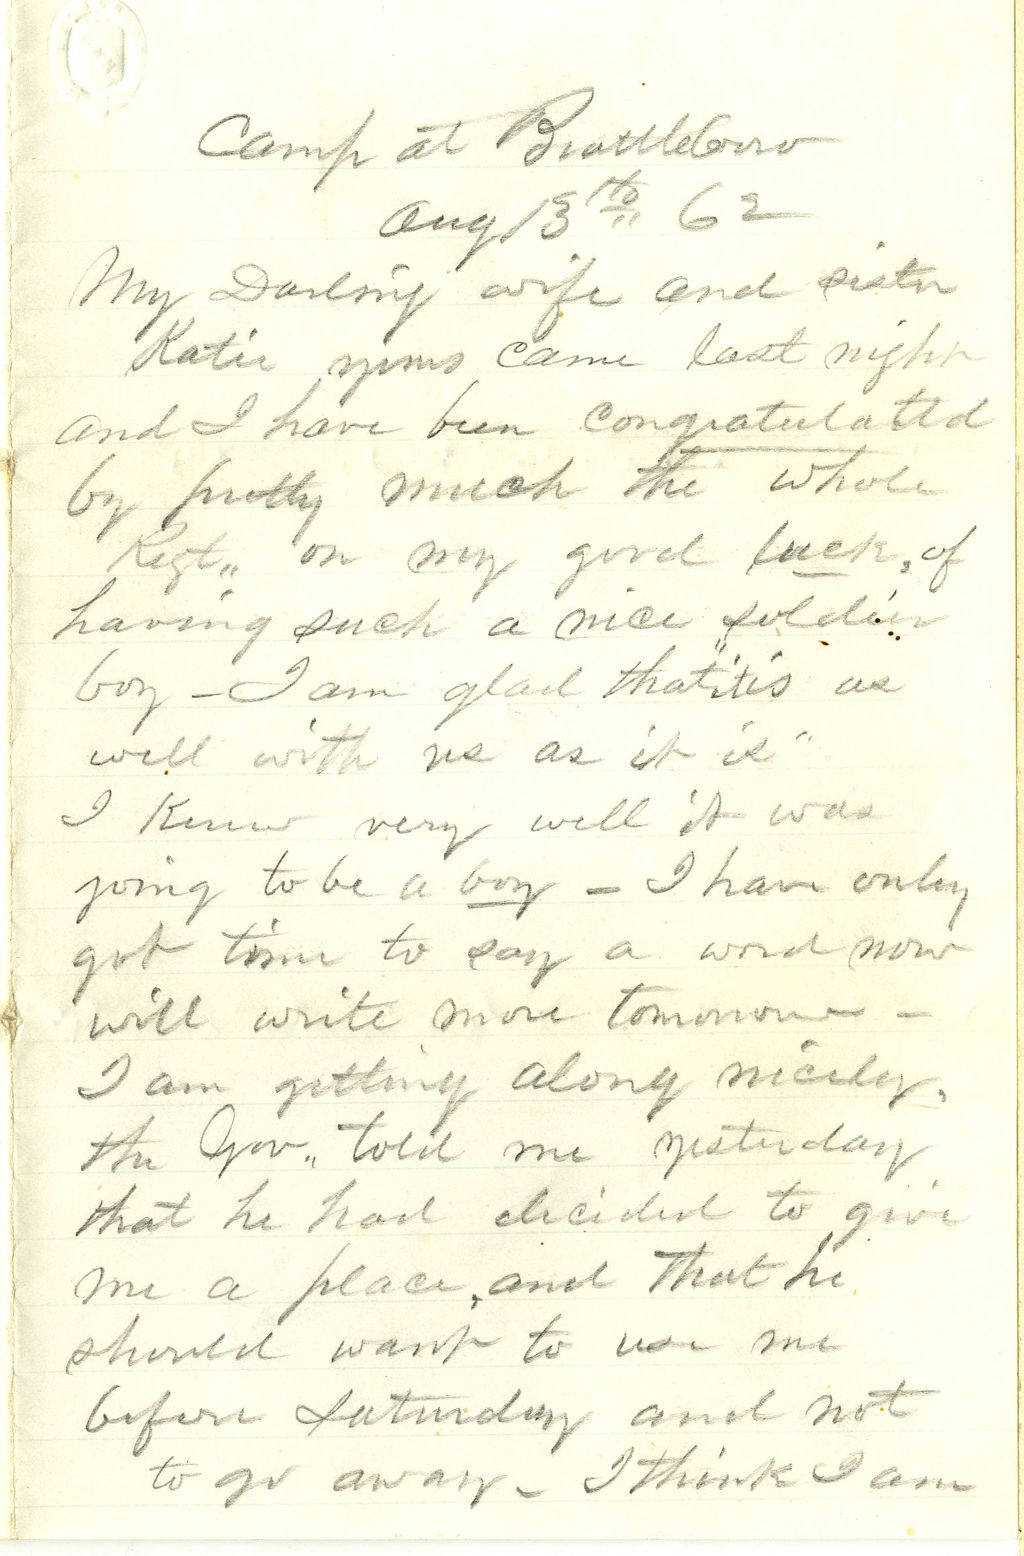 Camp at Brattleboro
Aug 13th 62
My Darling wife and sister
Katie yours came last night
and I have been congratulattd
by pretty much the whole
Regt,, on my good luck, of
having such a nice "soldier
boy - I am glad that "it is as
well with us as it is"
I knew very well it was
going to be a boy - I have onley
got time to say a word now
will write more tomorrow -
I am getting along nicely,
the Gov,, told me yesterday
that he had decided to give
me a place, and that he
should want to use me
before Saturday and not
to go away - I think I am